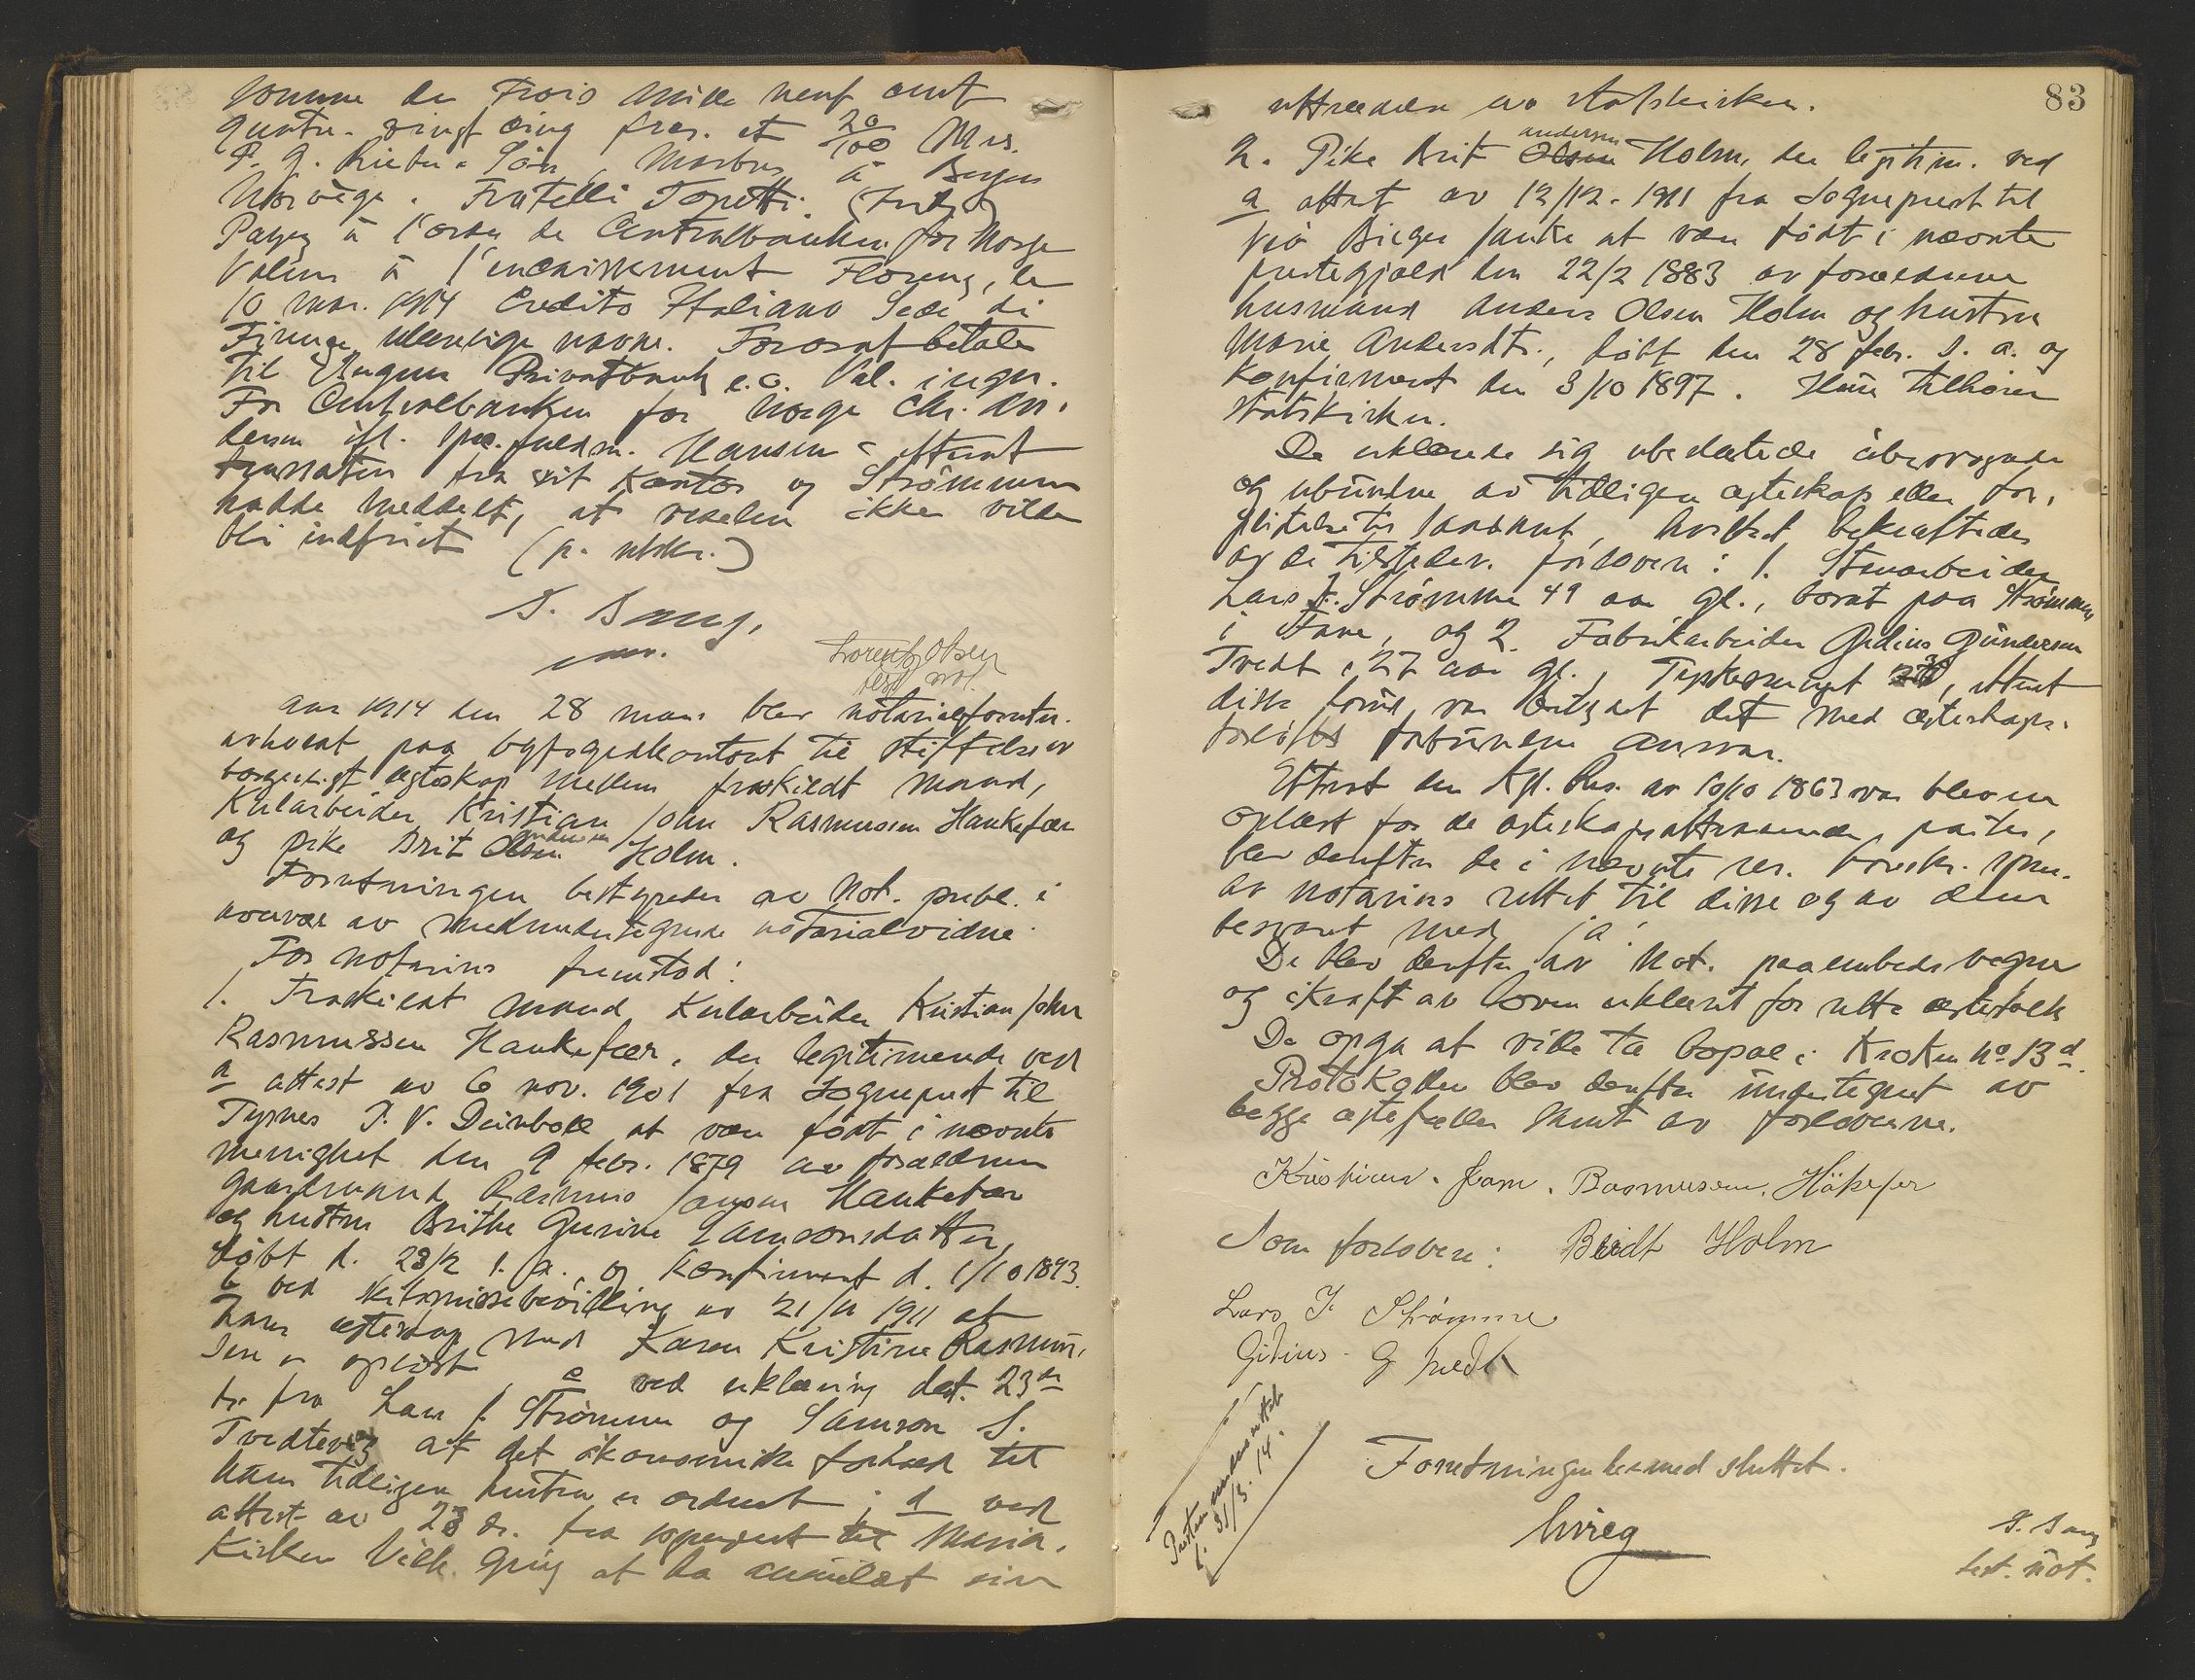 somme de Trois mille neuf cent
quatre-vingt cinq frcs. et 20/100 Mrs.
P. G. Rieber & Søn, à Bergen
Norvège. Fratelli
Payez à l'ordre de Centralbanken for Norge
Valeur à l'encaissement, le
10 mar. 1914 Credito Italiano Sede di
Firenze navne. Forosaf betale
til Bergens Privatbank e.o. Val. i regn.
For Centralbanken for Norge Chr. An-
dersen ifl. fuldm. Hansen - efterat
fra sit kontor og Strømmen
hadde meddelt, at vexelen ikke vilde
bli indfriet (p. utskr.)
Lorentz Olsen
test. not.
Aar 1914 den 28 mars blev notarialforretn.
avholdt paa byfogedkontoret til stiftelse av
borgerligt egteskap mellem fraskildt mand,
Kularbeider Kristian John Rasmussen Haukefær
og pike Brit Olsen Andersen Holm.
Forretningen bestyredes av Not. publ. i
nærvær av medundertegnede notarialvidne.
For notarius fremstod:
1. Fraskilt mand Kularbeider Kristian John
Rasmussen Haukefær, der legitimerede ved
a attest av 6 nov. 1901 fra Sogneprest til
Tysnes J. V. Deinboll at være født i nævnte
menighet den 9 febr. 1879 av forældrene
gaardmand Rasmus Jansen Haukefær
og hustru Brithe Gurine Samsonsdatter,
døbt d. 23/2 s. a. og konfirmert d. 1/10 1893.
b ved skilsmissebevilling av 21/11 1911 at
hans egteskap med Karen Kristine Rasmus-
sen er opløst, c ved erklæring dat. 23de
ds. fra Lars J. Strømme og Samson S.
Tvedtevåg at det økonomiske forhold til
hans tidligere hustru er ordnet; d ved
attest av 23 ds. fra sogneprest til Maria-
Kirken Vilh. Grieg at ha anmeldt sin
83
uttræden av statskirken.
2. Pike Brit Olsen Andersen Holm, der legitim. ved
a attest av 12/12. 1911 fra Sogneprest til
Birger at være født i nævnte
prestegjæld den 22/2 1883 av forældrene
husmand Anders Olsen Holm og hustru
Marie Andersdtr., døbt den 28 febr. s. a. og
konfirmert den 3/10 1897. Hun tilhører
statskirken.
De erklærede sig ubeslægtede ubesvogrede
og ubundne av tidligere egteskap eller for-
pligtelse til saadant, hvilket bekræftedes
av de tilstedev. forlovere: 1. Stenarbeider
Lars J. Strømme 49 aar gl., boende paa Strømme
i Fane, og 2. Fabrikarbeider Gidius Gundersen
Tvedt, 27 aar gl., efterat
disse forut var betydet det med egteskaps-
forløfte forbundne ansvar.
Efterat den Kgl. Res. av 16/10 1863 var bleven
oplæst for de egteskapsattraaende parter,
blev derefter de i nævnte res. foreskr. spm.
av notarius rettet til disse og av dem
besvaret med ja!
De blev derefter av Not. paa embeds vegne
og i kraft av loven erklæret for rette egtefolk
De opga at ville ta bopæl i Kroken No 13d.
Protokollen blev derefter undertegnet av
begge egtefæller samt av forloverne.
Kristian. Jam. Rasmusen. Håkefær
Som forlovere: Bridt Holm
Lars J. Strømme
Gidius. G Tvedt
Presten underrettet
31/3. 14.
Forretningen hermed sluttet.
S. Bang
test. not.